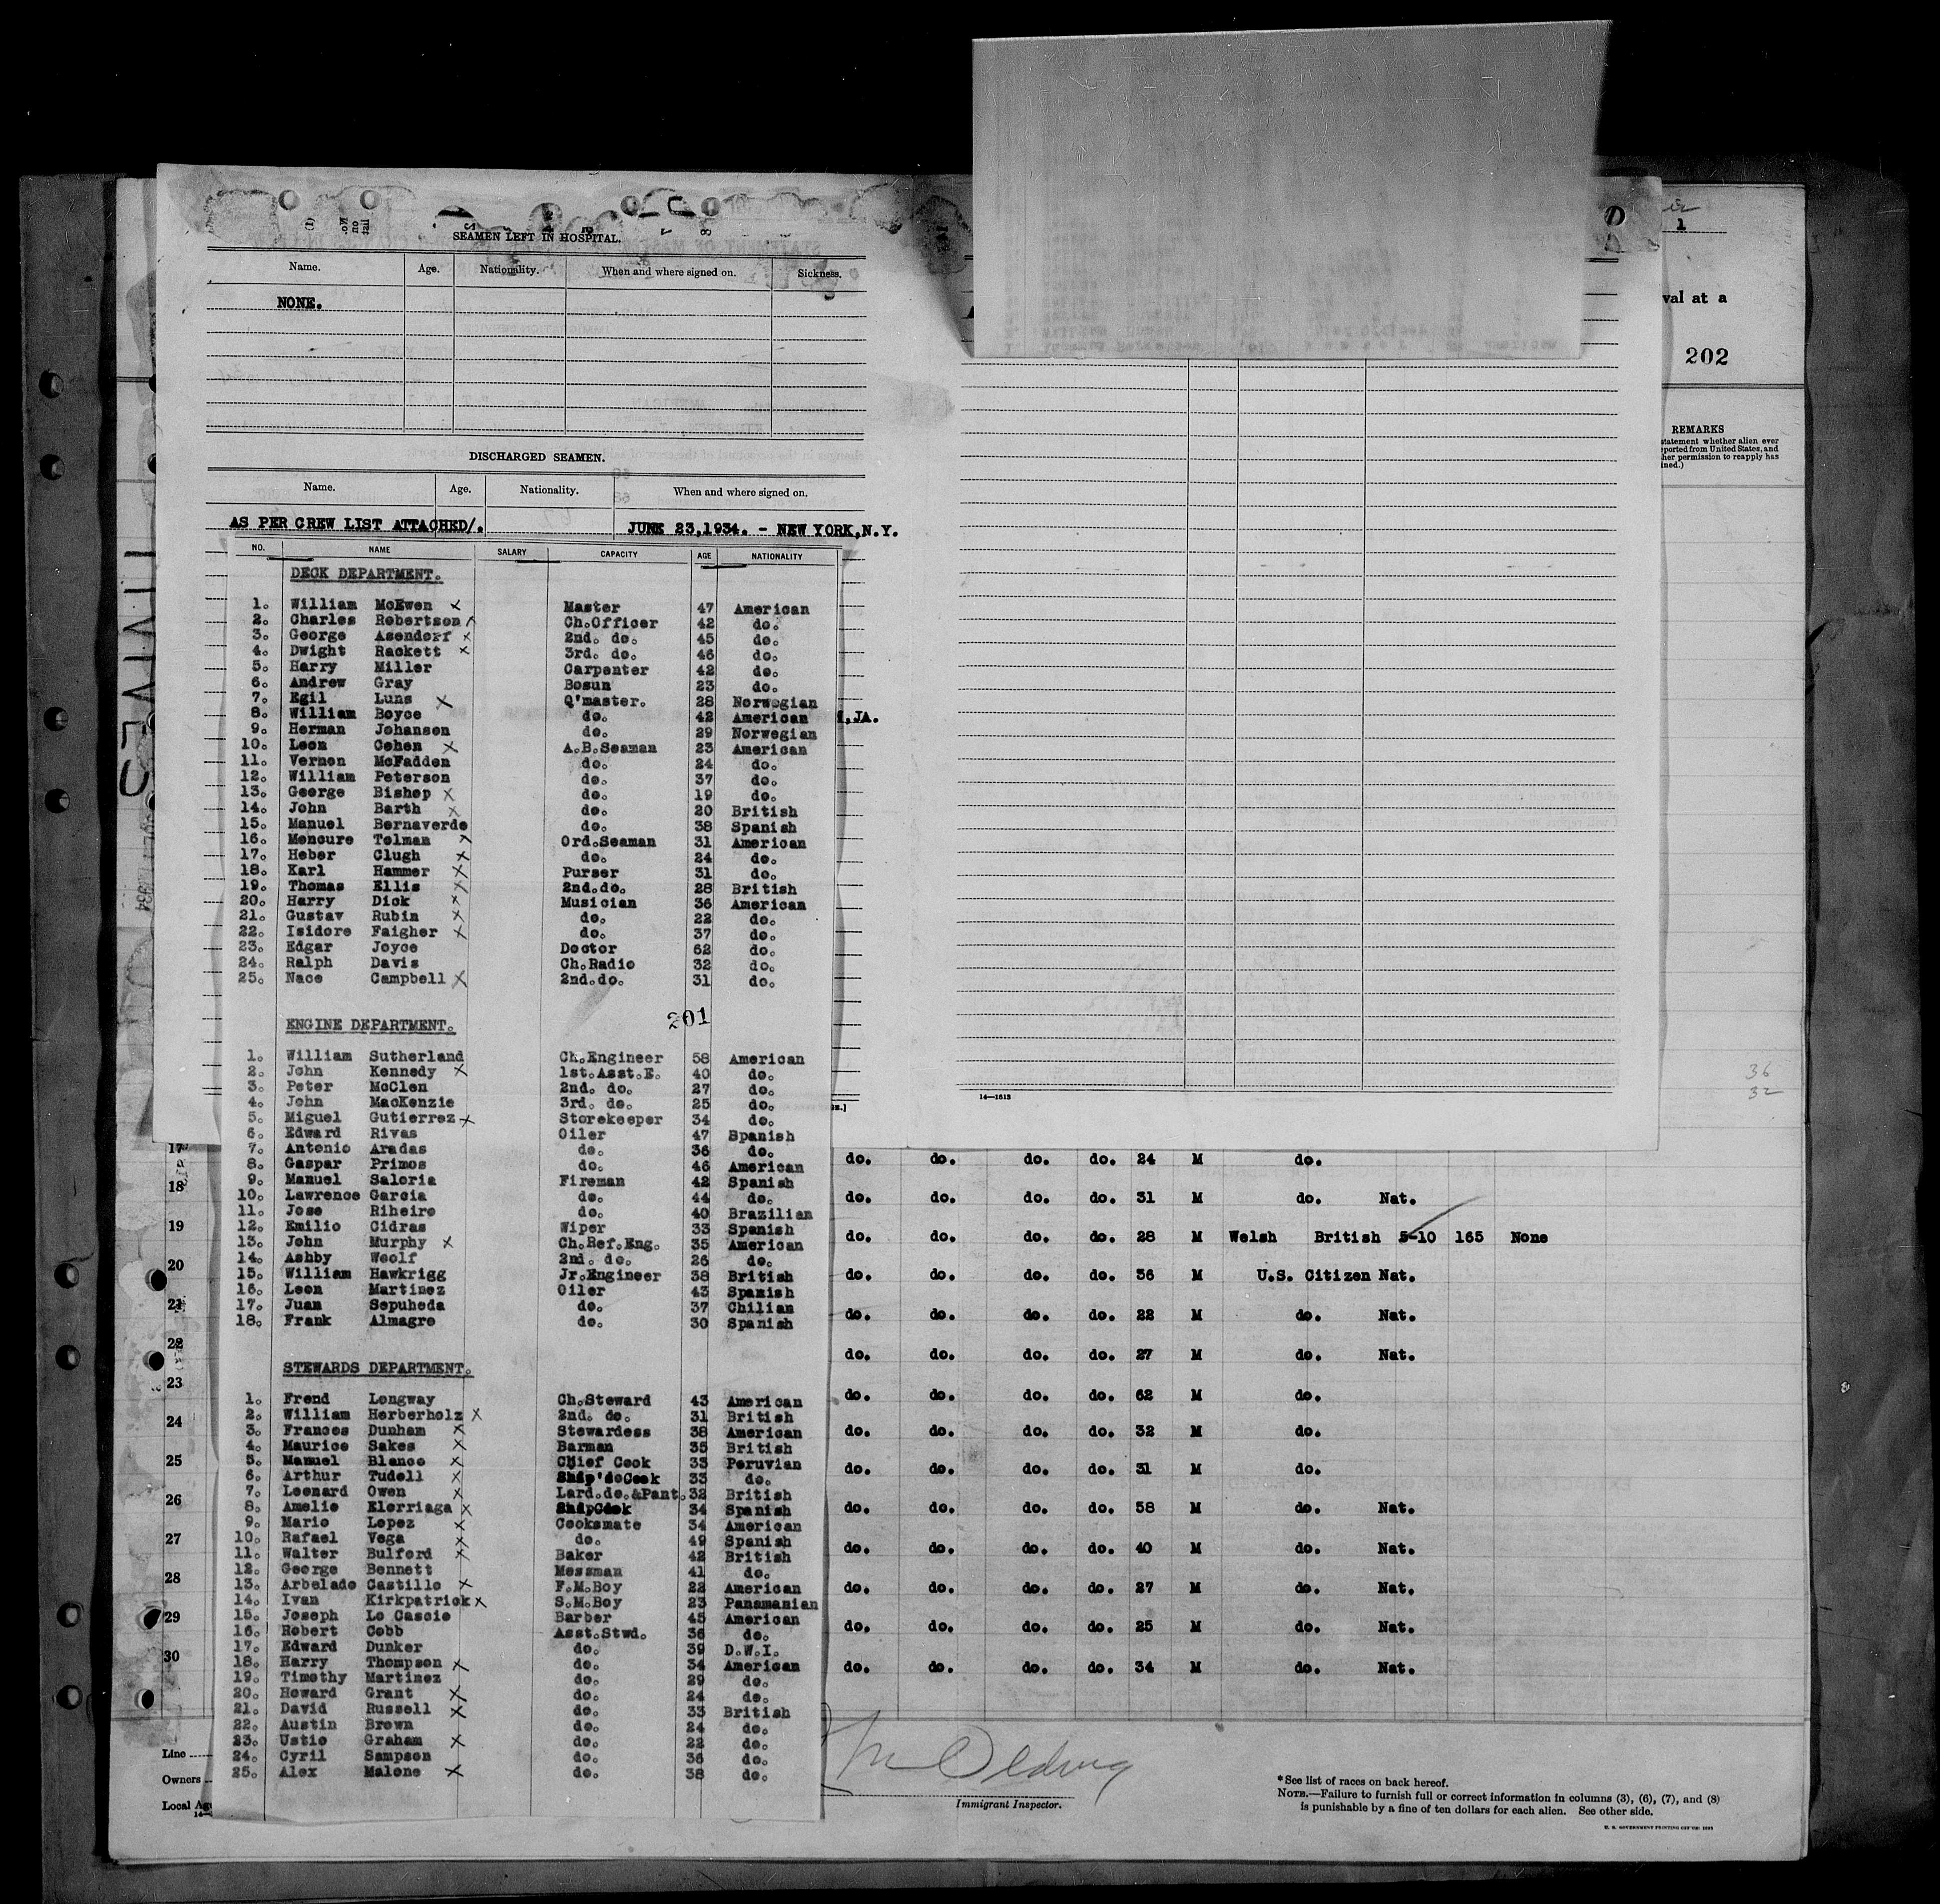 SEAMEN LEFT IN HOSPITAL.
Name. Age. Nationality. When and where signed on. Sickness.
NONE.
DISCHARGED SEAMEN.
Name. Age. Nationality. When and where signed on.
AS PER CREW LIST ATTACHED/. JUNE 23,1934. - NEW YORK,N.Y.
NO. NAME SALARY CAPACITY AGE NATIONALITY
DECK DEPARTMENT.
1. William McEwen x Master 47 American
2. Charles Robertson x Ch.Officer 42 do.
3. George Asendorf x 2nd. do. 45 do.
4. Dwight Rackett x 3rd. do. 46 do.
5. Harry Miller Carpenter 42 do.
6. Andrew Gray Bosun 23 do.
7. Egil Luns x Q'master. 28 Norwegian
8. William Boyce do. 42 American
9. Herman Johansen do. 29 Norwegian
10. Leon Cohen x A.B.Seaman 23 American
11. Vernon McFadden do. 24 do.
12. William Peterson do. 37 do.
13. George Bishop x do. 19 do.
14. John Barth x do. 20 British
15. Manuel Bernaverde do. 38 Spanish
16. Moncure Tolman x Ord.Seaman 31 American
17. Heber Clugh x do. 24 do.
18. Karl Hammer x Purser 31 do.
19. Thomas Ellis x 2nd.do. 28 British
20. Harry Dick x Musician 36 American
21. Gustav Rubin x do. 22 do.
22. Isidore Faigher x do. 37 do.
23. Edgar Joyce Doctor 62 do.
24. Ralph Davis Ch.Radio 32 do.
25. Nace Campbell x 2nd.do. 31 do.
201
ENGINE DEPARTMENT.
1. William Sutherland Ch.Engineer 58 American
2. John Kennedy x 1st.Asst.E. 40 do.
3. Peter McClen 2nd. do. 27 do.
4. John MacKenzie 3rd. do. 25 do.
5. Miguel Gutierrez x Storekeeper 34 do.
6. Edward Rivas Oiler 47 Spanish
7. Antonio Aradas do. 36 do.
8. Gaspar Primos do. 46 American
9. Manuel Saloria Fireman 42 Spanish
10. Lawrence Garcia do. 44 do.
11. Jose Riheiro do. 40 Brazilian
12. Emilio Cidras Wiper 33 Spanish
13. John Murphy x Ch.Ref.Eng. 35 American
14. Ashby Woolf 2nd. do. 26 do.
15. William Hawkrigg Jr.Engineer 38 British
16. Leon Martinez Oiler 43 Spanish
17. Juan Sepuheda do. 37 Chilian
18. Frank Almagro do. 30 Spanish
STEWARDS DEPARTMENT.
1. Frend Longway Ch.Steward 43 American
2. William Herberholz x 2nd. do. 31 British
3. Frances Dunham x Stewardess 38 American
4. Maurice Sakes x Barman 35 British
5. Manuel Blanco x Chief Cook 33 Peruvian
6. Arthur Tudell x 33 do.
7. Leonard Owen x Lard.do.&Pant. 32 British
8. Amelio Elorriaga x 34 Spanish
9. Mario Lopez x Cooksmate 34 American
10. Rafael Vega x do. 49 Spanish
11. Walter Bulford x Baker 42 British
12. George Bennett Messman 41 do.
13. Arbelado Castillo x F.M.Boy 22 American
14. Ivan Kirkpatrick x S.M.Boy 23 Panamanian
15. Joseph Lo Cascio Barber 45 American
16. Robert Cobb Asst.Stwd. 36 do.
17. Edward Dunker do. 39 D.W.I.
18. Harry Thompson x do. 34 American
19. Timothy Martinez do. 29 do.
20. Howard Grant x do. 24 do.
21. David Russell x do. 33 British
22. Austin Brown do. 24 do.
23. Ustio Graham x do. 22 do.
24. Cyril Sampson do. 36 do.
25. Alex Malone x do. 38 do.
,JA.
14—1613
1
val at a
202
REMARKS
statement whether alien ever
ported from United States, and
her permission to reapply has
ined.)
36
32
17 do. do. do. do. 24 M do.
18 do. do. do. do. 31 M do. Nat.
19 do. do. do. do. 28 M Welsh British 5-10 165 None
20 do. do. do. do. 36 M U.S. Citizen Nat.
21 do. do. do. do. 22 M do. Nat.
22 do. do. do. do. 27 M do. Nat.
23 do. do. do. do. 62 M do.
24 do. do. do. do. 32 M do.
25 do. do. do. do. 31 M do.
26 do. do. do. do. 58 M do. Nat.
27 do. do. do. do. 40 M do. Nat.
28 do. do. do. do. 27 M do. Nat.
29 do. do. do. do. 25 M do. Nat.
30 do. do. do. do. 34 M do. Nat.
Line
Owners
Local Ag
Immigrant Inspector.
*See list of races on back hereof.
NOTE.—Failure to furnish full or correct information in columns (3), (6), (7), and (8)
is punishable by a fine of ten dollars for each alien. See other side.
U. S. GOVERNMENT PRINTING OFFICE: 1933